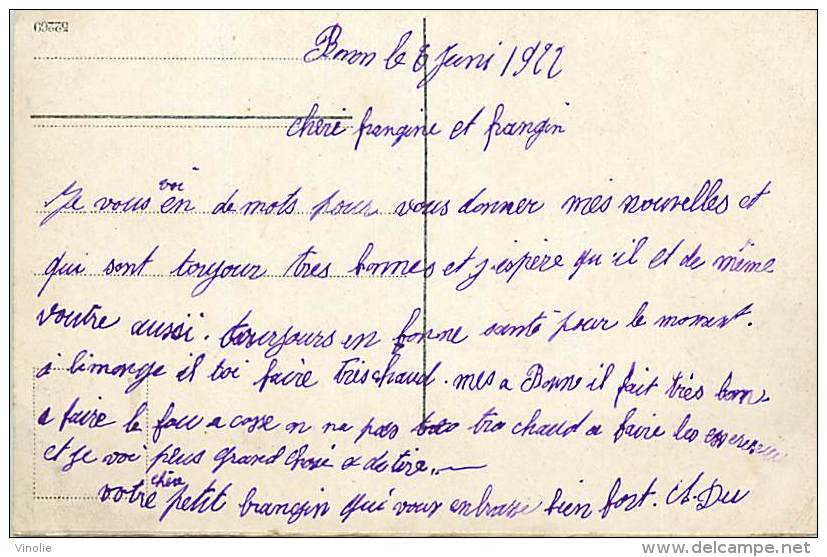 52260
Bonn le 8 Juni 1922
cheré frangine et frangin
Je vous voi en de mots pour vous donner mes nouvelles et
qui sont toujour tres bonnes et j'espère qu'il et de même
voutre aussi. tourjours en bonne santé pour le moment.
a limonge il toi faire trischaud. mes a Bonn il fait très bon
a faire le fou a cosse n na pas tro chaud a faire les
et je voi plus grand chose a detire.
votre cher petit frangin qui vous enbrasse bien fort. Ch. Du
Vinolie http://www.delcampe.net